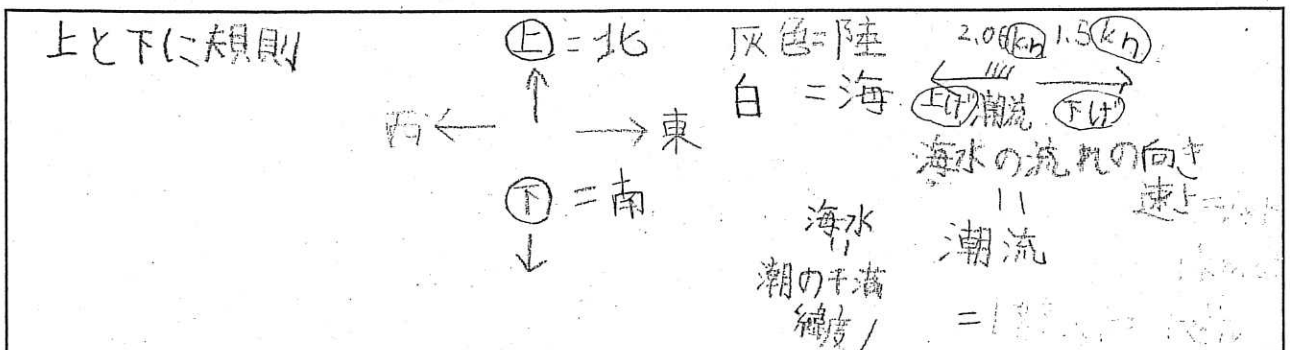 上と下に規則
上=北
西 東
下=南
灰色=陸
白=海
2.0kn 1.5kn
上げ潮流 下げ
海水の流れの向き
速さ
=
潮流
海水
=
潮の干満
緯度
=1